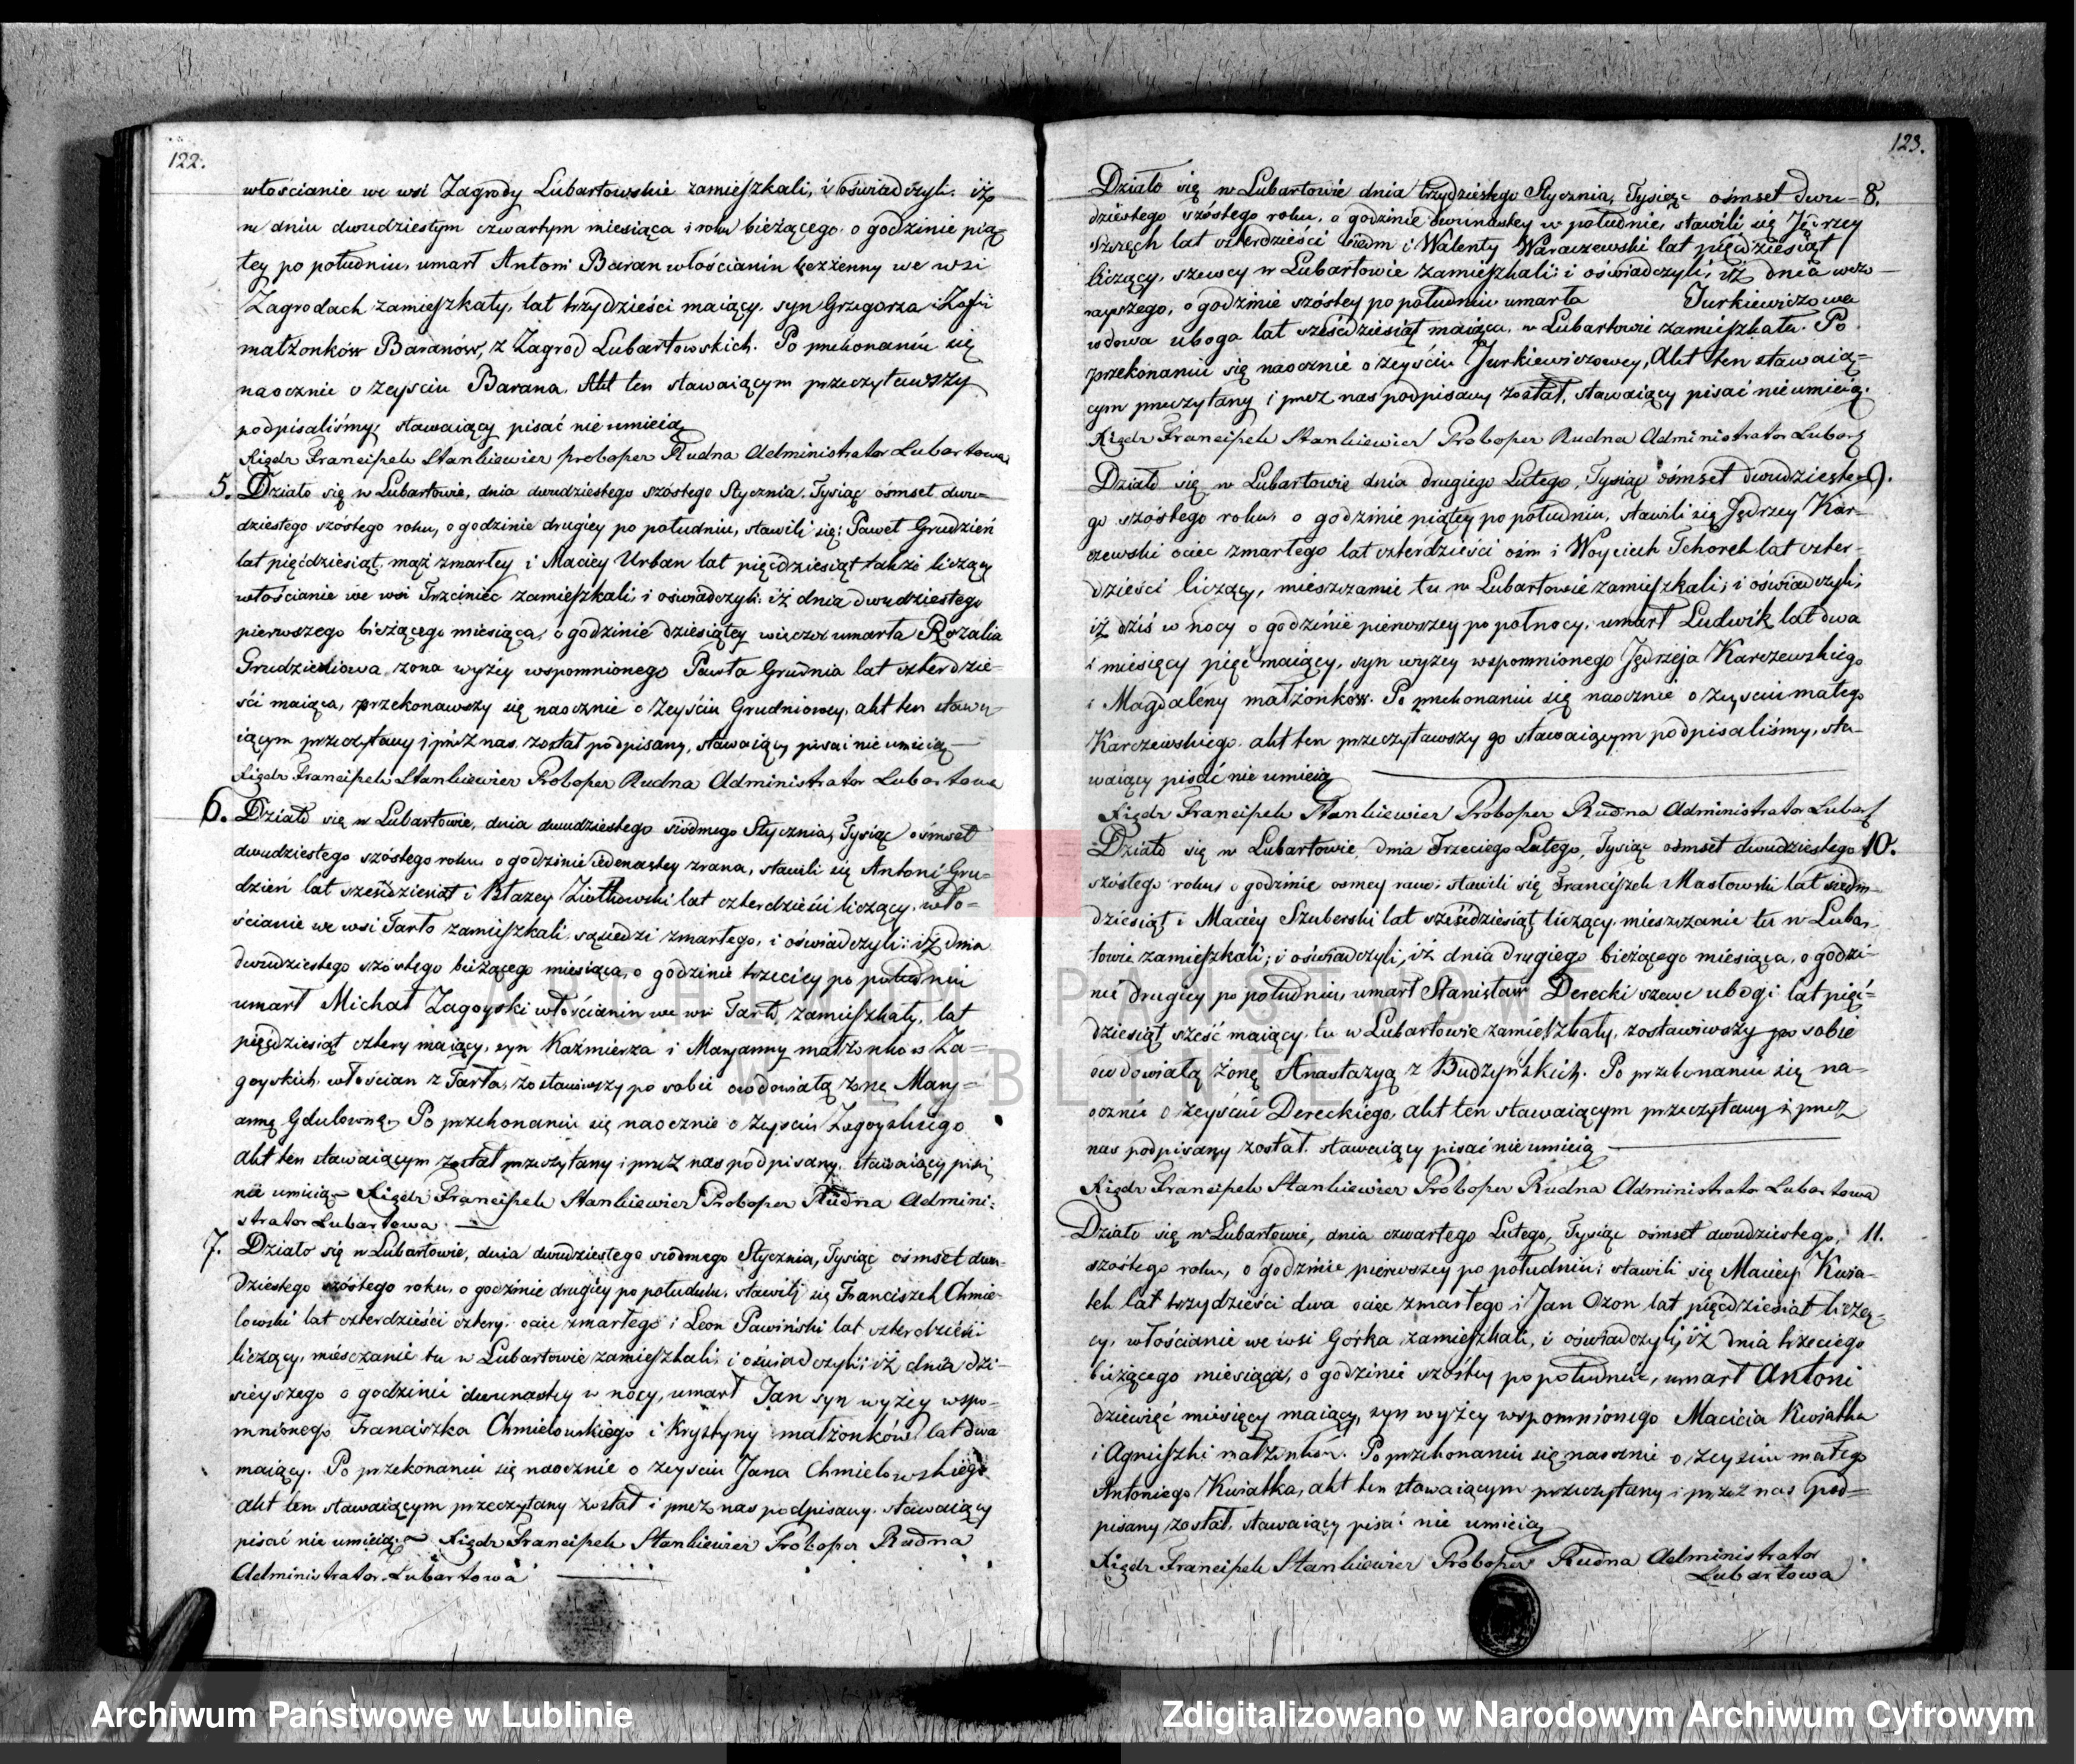 122.
włościanie we wsi Zagrody Lubartowskie zamieszkali, i oświadczyli: iż
w dniu dwudziestym czwartym miesiąca i roku bieżącego o godzinie pią-
tey po południu, umarł Antoni Baran włościanin bezżenny we wsi
Zagrodach zamieszkały, lat trzydzieści maiący, syn Grzegorza i Zofii
małżonków Baranów, z Zagrod Lubartowskich. Po przekonaniu się
naocznie o zeyściu Barana, Akt ten stawaiącym przeczytawszy
podpisaliśmy, stawaiący pisać nie umieią
Xiądz Franciszek Stankiewicz Proboszcz Rudna Administrator Lubartowa
5. Działo się w Lubartowie, dnia dwudziestego szóstego Stycznia, Tysiąc ośmset dwu-
dziestego szóstego roku, o godzinie drugiey po południu, stawili się: Paweł Grudzień
lat pięćdziesiąt, mąż zmarłey i Maciey Urban lat pięćdziesiąt także liczący
włościanie we wsi Trzciniec zamieszkali, i oświadczyli: iż dnia dwudziestego
pierwszego bieżącego miesiąca, o godzinie dziesiątey wieczor umarła Rozalia
Grudzieniowa żona wyżey wspomnionego Pawła Grudnia lat czterdzie-
ści maiąca, przekonawszy się naocznie o zeyściu Grudniowey, akt ten stawa-
iącym przeczytany i przez nas został podpisany, stawaiący pisać nie umieią
Xiądz Franciszek Stankiewicz Proboszcz Rudna Administrator Lubartowa
6. Działo się w Lubartowie, dnia dwudziestego siódmego Stycznia, Tysiąc ośmset
dwudziestego szóstego roku o godzinie jedenastey zrana, stawili się Antoni Gru-
dzień lat sześćdziesiąt i Błazey Ziółkowski lat czterdzieści liczący, wło-
ścianie we wsi Tarło zamieszkali, sąsiedzi zmarłego, i oświadczyli: iż dnia
dwudziestego szóstego bieżącego miesiąca, o godzinie trzeciey po południu
umarł Michał Zagoyski włościanin we wsi Tarło zamieszkały, lat
pięćdziesiąt cztery maiący, syn Kaźmierza i Maryanny małżonków Za-
goyskich, włościan z Tarła, zostawiwszy po sobie owdowiałą żonę Mary-
annę Gdulownę. Po przekonaniu się naocznie o zeyściu Zagoyskiego
akt ten stawaiącym został przeczytany i przez nas podpisany, stawaiący pisać
nie umieią. Xiądz Franciszek Stankiewicz Proboszcz Rudna Admini-
strator Lubartowa
7. Działo się w Lubartowie, dnia dwudziestego siódmego Stycznia, Tysiąc ośmset dwu-
dziestego szóstego roku, o godzinie drugiey po południu, stawili się Franciszek Chmie-
lowski lat czterdzieści cztery, ociec zmarłego i Leon Pawiński lat czterdzieści
liczący, miesczanie tu w Lubartowie zamieszkali, i oświadczyli: iż dnia dzi-
sieyszego o godzinie dwunastey w nocy, umarł Jan syn wyżey wspo-
mnionego Franciszka Chmielowskiego i Krystyny małżonków lat dwa
maiący. Po przekonaniu się naocznie o zeyściu Jana Chmielowskiego
akt ten stawaiącym przeczytany został i przez nas podpisany, stawaiący
pisać nie umieią. Xiądz Franciszek Stankiewicz Proboszcz Rudna
Administrator Lubartowa
123.
Działo się w Lubartowie dnia trzydziestego Stycznia, Tysiąc ośmset dwu- 8.
dziestego szóstego roku, o godzinie dwunastey w południe, stawili się Jędrzey
lat czterdzieści siedm i Walenty Waraczewski lat pięćdziesiąt
liczący, szewcy w Lubartowie zamieszkali; i oświadczyli, iż dnia wczo-
rayszego, o godzinie szóstey po południu umarła Jurkiewiczowa
wdowa uboga lat sześćdziesiąt maiąca, w Lubartowie zamieszkała. Po
przekonaniu się naocznie o zeyściu Jurkiewiczowey, Akt ten stawaią-
cym przeczytany i przez nas podpisany został, stawaiący pisać nie umieią.
Xiądz Franciszek Stankiewicz Proboszcz Rudna Administrator Lubart
Działo się w Lubartowie dnia drugiego Lutego, Tysiąc ośmset dwudzieste- 9.
go szóstego roku, o godzinie piątey po południu, stawili się Jędrzey Kar-
czewski ociec zmarłego lat czterdzieści ośm i Woyciech Tchorek lat czter-
dzieści liczący, mieszczanie tu w Lubartowie zamieszkali; i oświadczyli;
iż dziś w nocy o godzinie pierwszey po północy, umarł Ludwik lat dwa
i miesięcy pięć maiący, syn wyżey wspomnionego Jędrzeja Karczewskiego
i Magdaleny małżonków. Po przekonaniu się naocznie o zeyściu małego
Karczewskiego, akt ten przeczytawszy go stawaiącym podpisaliśmy, sta-
waiący pisać nie umieią
Xiądz Franciszek Stankiewicz Proboszcz Rudna Administrator Lubart
Działo się w Lubartowie, dnia Trzeciego Lutego, Tysiąc ośmset dwudziestego 10.
szóstego roku, o godzinie osmey rano; stawili się Franciszek Masłowski lat siedm-
dziesiąt i Maciey Szuberski lat sześćdziesiąt liczący, mieszczanie tu w Lubar-
towie zamieszkali; i oświadczyli, iż dnia drugiego bieżącego miesiąca, o godzi-
nie drugiey po południu, umarł Stanisław Derecki szewc ubogi lat pięć-
dziesiąt sześć maiący, tu w Lubartowie zamieszkały, zostawiwszy po sobie
owdowiałą żonę Anastazyą z Budzyńskich. Po przekonaniu się na-
ocznie o zeyściu Dereckiego, akt ten stawaiącym przeczytany i przez
nas podpisany został, stawaiący pisać nie umieią
Xiądz Franciszek Stankiewicz Proboszcz Rudna Administrator Lubartowa
Działo się w Lubartowie, dnia czwartego Lutego, Tysiąc ośmset dwudziestego, 11.
szóstego roku, o godzinie pierwszey po południu; stawili się Maciey Kwia-
tek lat trzydzieści dwa ociec zmarłego i Jan Ozon lat pięćdziesiąt liczą-
cy, włościanie we wsi Górka zamieszkali, i oświadczyli, iż dnia trzeciego
bieżącego miesiąca, o godzinie szóstey po południu, umarł Antoni
dziewięć miesięcy maiący, syn wyżey wspomnionego Macieia Kwiatka
i Agnieszki małżonków. Po przekonaniu się naocznie o zeyściu małego
Antoniego Kwiatka, akt ten stawaiącym przeczytany i przez nas pod-
pisany został, stawaiący pisać nie umieią
Xiądz Franciszek Stankiewicz Proboszcz Rudna Administrator
Lubartowa
ARCHIWUM PAŃSTWOWE
W LUBLINIE
Archiwum Państwowe w Lublinie
Zdigitalizowano w Narodowym Archiwum Cyfrowym